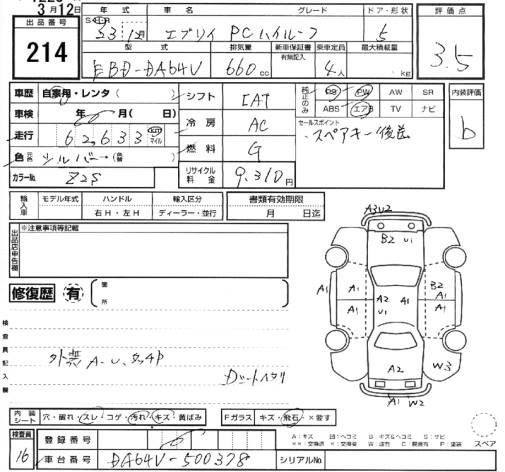 3月12日
出品番号
214
年式 車名 グレード ドア・形状
S・H 33 1 エブリイ PCハイルーフ 5
型式 排気量 新車保証書 乗車定員 最大積載量
有無記入
EBD-DA64V 660cc 4人 kg
評価点
3.5
車歴 自家用・レンタ
車検 年 月(日)
走行 62,633 マイル
色 元色 シルバー (替)
カラーNo. Z2S
シフト IAT
冷房 AC
燃料 G
リサイクル料金 9,310円
純正のみ PS PW AW SR
ABS エアB TV ナビ
セールスポイント
スペアキー後送
内装評価
b
輸入車 モデル年式 ハンドル 輸入区分
右H・左H ディーラー・並行
書類有効期限
月 日迄
出品店申告欄
※注意事項等記載
修復歴 有
箇所
検査員記入欄
外装 A-U、
A3U2
B2 U1
A1 A1
B2
A1 A1
A2 A1
U1
A1
W3
A2
A1 W2
内装シート 穴・破れ・スレ・コゲ・汚れ・キズ・黄ばみ
Fガラス キズ・飛石・×要す
A:キズ U:凹ヘコミ B:キズ&ヘコミ S:サビ
スペア
検査員
16
登録番号
車台番号 DA64V-500378
シリアルNo.